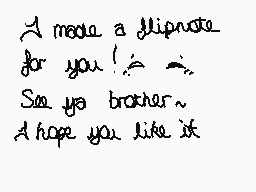 I made a flipnote
for you!
See ya brother~
I hope you like it